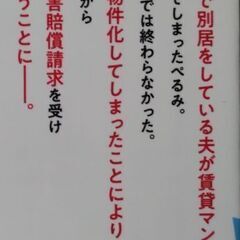 で別居をしている夫が賃貸マン
てしまったぺるみ。
では終わらなかった。
物件化してしまったことにより
から
害賠償請求を受け
うことに——。